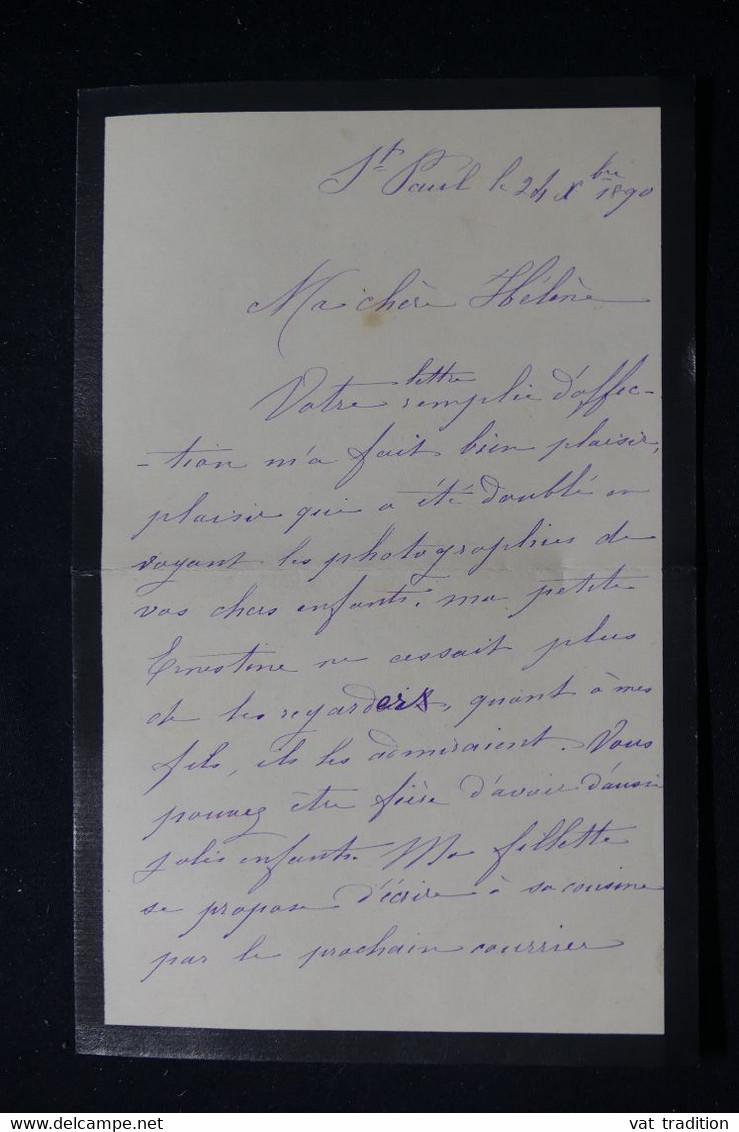 St Paul le 24 Xbre 1890
Ma chère Hélène
Votre lettre remplie d'affec-
-tion m'a fait bien plaisir,
plaisir qui a été doublé en
voyant les photographies de
vos chers enfants. ma petite
Ernestine ne cessait plus
de les regarders, quant à mes
fils, ils les admiraient. Vous
pouvez être fière d'avoir d'aussi
jolis enfants. Ma fillette
se propose d'écrire à sa cousine
par le prochain courrier
www.delcampe.net
vat tradition